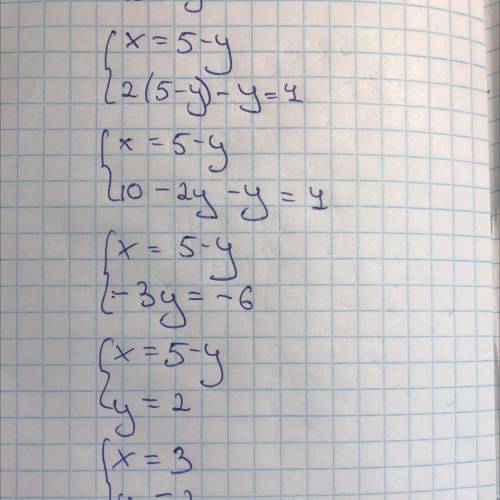 x = 5-y
2(5-y)-y=4
x = 5-y
10 - 2y - y = 4
x = 5-y
-3y = -6
x = 5-y
y = 2
x = 3